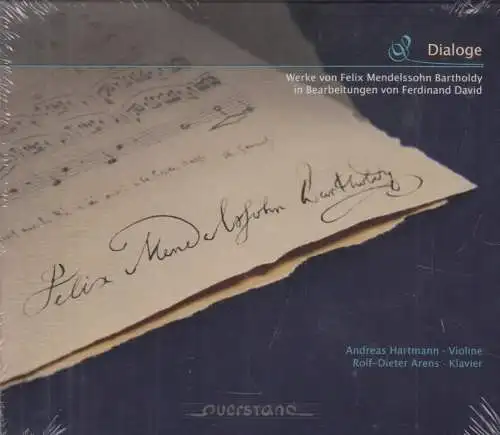 Dialoge
Werke von Felix Mendelssohn Bartholdy
in Bearbeitungen von Ferdinand David
Felix Mendelssohn Bartholdy
Andreas Hartmann · Violine
Rolf-Dieter Arens · Klavier
querstand